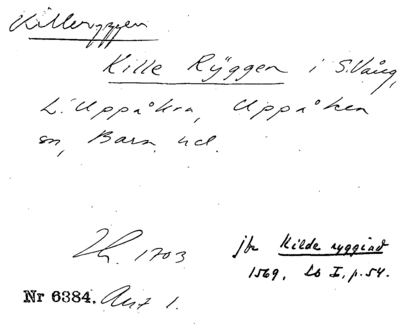 Killeryggen
Kille Ryggen i S. Vång,
L. Uppåkra, Uppåkra
sn, Bara hd.
Lk. 1703
jfr Kilde ryggiad
1569, Lb I, p. 54.
Nr 6384. Avs 1.